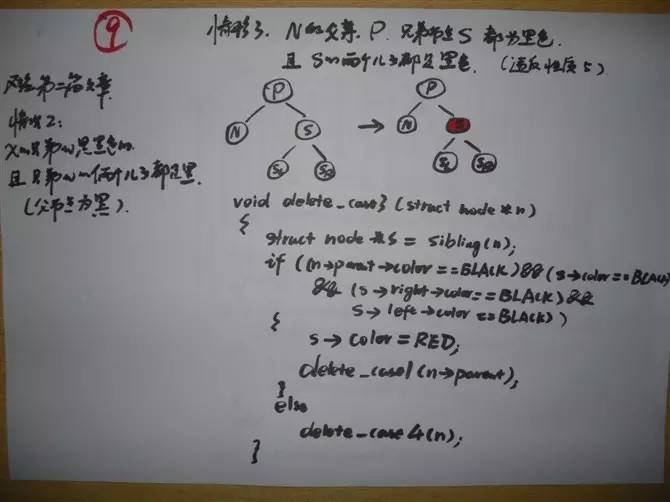 9
情形3. N的父亲. P. 兄弟节点S 都为黑色.
且 S的两个儿子都是黑色. (违反性质5).
第二篇文章.
情况2:
X的兄弟w是黑色的.
且兄弟w的俩个儿子都是黑.
(父节点为黑).
P
N
S
SL
SR
→
P
N
SL
SR
void delete_case3 (struct node *n)
{
struct node *s = sibling(n);
if ((n→parent→color == BLACK) && (s→color == BLACK)
&& (s→right→color == BLACK) &&
s→left→color == BLACK))
{
s→color = RED;
delete_case1(n→parent);
}
else
delete_case4(n);
}